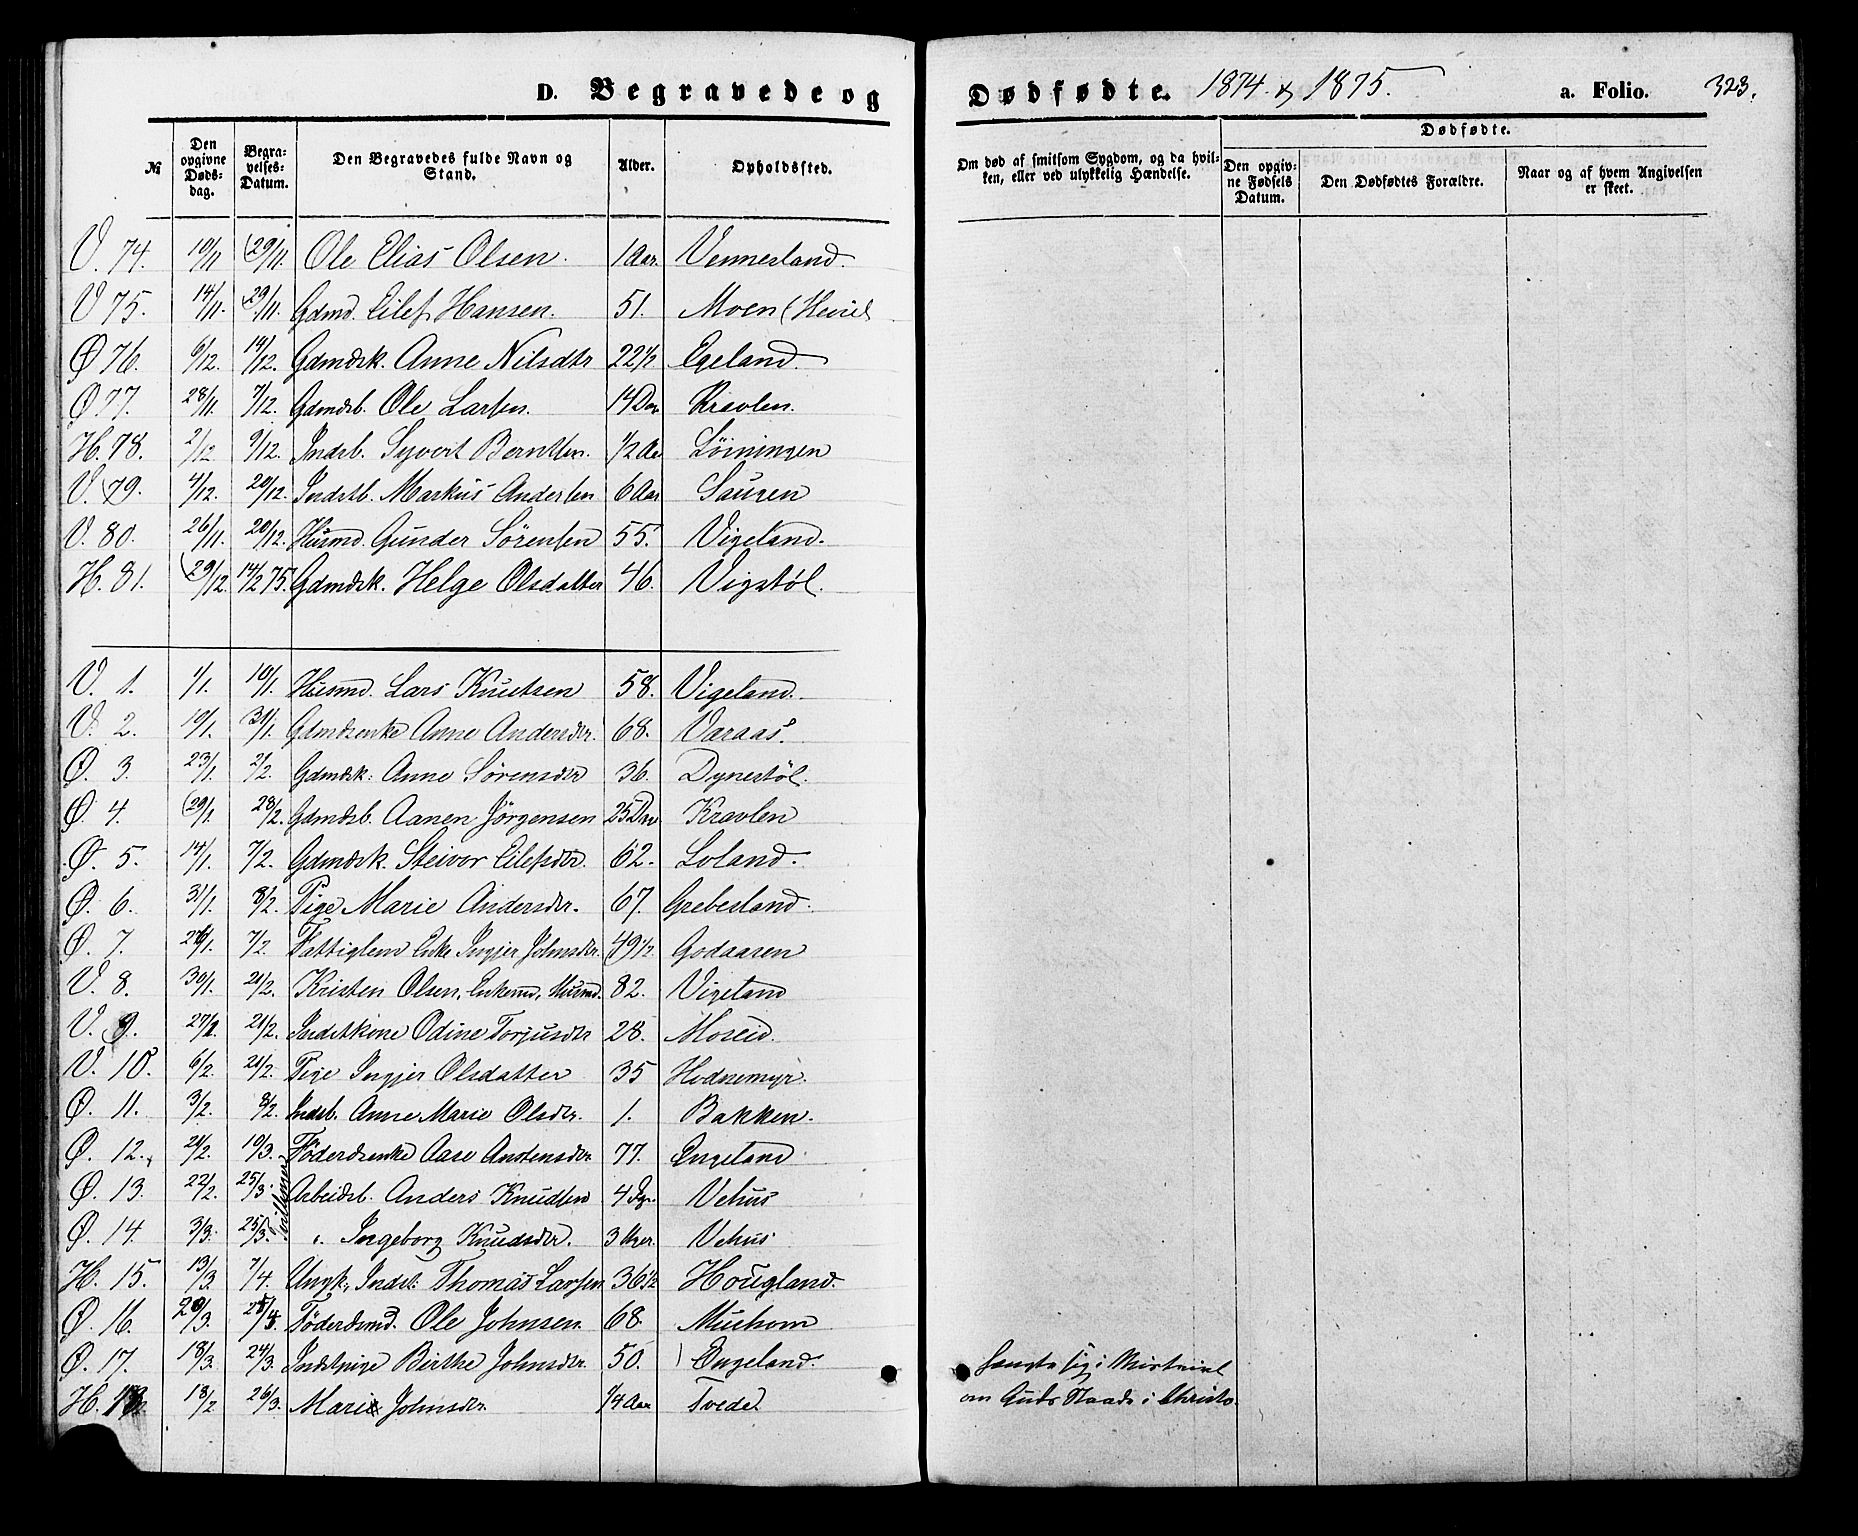 D. Begravede og Dødfødte. 1874 & 1875. a. Folio. 323.
№ Den opgivne Dødsdag. Begravelses-Datum. Den Begravedes fulde Navn og Stand. Alder. Opholdssted. Om død af smitsom Sygdom, og da hvilken, eller ved ulykkelig Hændelse. Dødfødte. Den opgivne Fødsels Datum. Den Dødfødtes Forældre. Naar og af hvem Angivelsen er skeet.
V. 74. 10/11 29/11. Ole Elias Olsen. 1 Aar. Vennesland.
V 75. 14/11. 29/11. Gdmd. Eilef Hansen. 51. Moen
Ø 76. 6/12. 14/12. Gdmdsk. Anne Nilsdtr 22 1/2 Egeland.
Ø 77. 28/11. 7/12. Gdmdsb. Ole Larsen. 14 Dar. Kravlen.
H. 78. 2/12 9/12. Indsb. Syvert Berntsen. 1/2 Aar Løiningen
V. 79. 4/12. 20/12. Indstb. Markus Andersen 6 Aar Saugen
V. 80. 26/11. 20/12. Husmd. Gunder Sørensen 55. Vigeland.
H. 81. 29/12. 14/2 75. Gdmdsk. Helge Olsdatter 46. Vigstöl.
V. 1. 1/1. 10/1. Husmd. Lars Knutsen 58. Vigeland.
V. 2. 10/1. 31/1. Gdmdsenke Anne Andersdtr. 68. Varaas.
Ø. 3. 23/1. 2/2. Gdmdsk. Anne Sørensdtr 36. Dynestöl.
Ø. 4. 29/1. 28/2. Gdmdsb. Aanen Jörgensen 25 Dar Kravlen
Ø. 5. 14/1. 7/2. Gdmdsk. Steivor Eilefsdtr. 62. Loland.
Ø. 6. 31/1. 8/2. Pige Marie Andersdtr. 67. Grebesland.
Ø. 7. 26/1. 7/2. Fattiglem Enke Ingjer Johnsdtr. 49 1/2. Godaasen
V. 8. 30/1. 21/2. Kristen Olsen, Enkemd, Husmd. 82. Vigeland
V. 9. 27/1. 21/2. Indstkone Odine Torjusdtr 28. Moseid.
V. 10. 6/2. 21/2. Pige Ingjer Olsdatter 35 Hodnemyr.
Ø. 11. 3/2. 8/2. Indsb. Anne Marie Olsdtr. 1. Bakken.
Ø. 12. 21/2. 10/3. Föderdsenke Aase Anstensdtr. 77. Engeland
Ø. 13. 22/2. 25/3. Arbeidsb. Anders Knudsen 4 Dgr. Vehus
Ø. 14. 3/3. 25/3. " Ingeborg Knudsdtr. 3 Uger. Vehus
H. 15. 13/3. 7/4. Ungk., Indst. Thomas Larsen 36 1/2 Hougland.
Ø. 16. 20/3. 25/4. Föderdsmd. Ole Johnsen. 68. Mushom
Ø. 17. 18/3. 24/3. Indstpige Birthe Johnsdtr. 50. Engeland. hængte sig i Mistvivl
H. 18. 18/2 26/3. Marie Johnsdtr. 1/4 Aar Tvede. om Guds Naade i Christo.